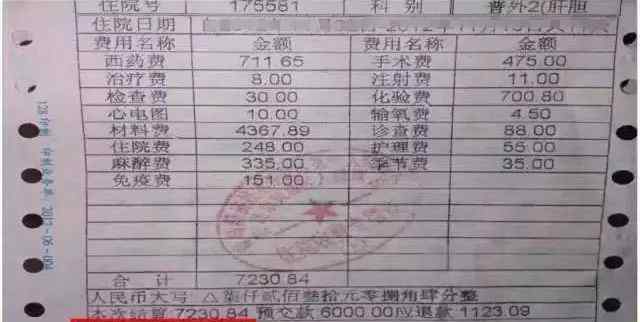 住院号 175581 科别 普外2(肝胆
住院日期
费用名称 金额 费用名称 金额
西药费 711.65 手术费 475.00
治疗费 8.00 注射费 11.00
检查费 30.00 化验费 700.80
心电图 10.00 输氧费 4.50
材料费 4367.89 诊查费 88.00
住院费 248.00 护理费 55.00
麻醉费 335.00 季节费 35.00
免疫费 151.00
合计 7230.84
人民币大写 △柒仟贰佰叁拾元零捌角肆分整
本次结算 7230.84 预交款 6000.00应退款 1123.09